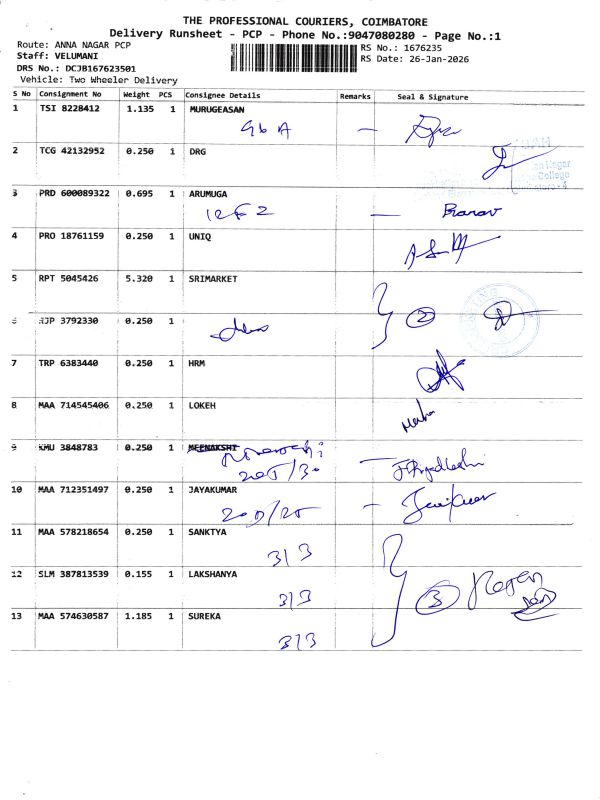 THE PROFESSIONAL COURIERS, COIMBATORE
Delivery Runsheet - PCP - Phone No.:9047080280 - Page No.:1
Route: ANNA NAGAR PCP
Staff: VELUMANI
DRS No.: DCJB167623501
Vehicle: Two Wheeler Delivery
RS No.: 1676235
RS Date: 26-Jan-2026
S No Consignment No Weight PCS Consignee Details Remarks Seal & Signature
1 TSI 8228412 1.135 1 MURUGEASAN
96 A —
2 TCG 42132952 0.250 1 DRG
3 PRD 600089322 0.695 1 ARUMUGA
— Pranav
4 PRO 18761159 0.250 1 UNIQ
5 RPT 5045426 5.320 1 SRIMARKET
2
6 AJP 3792330 0.250 1
7 TRP 6383440 0.250 1 HRM
8 MAA 714545406 0.250 1 LOKEH
9 KMU 3848783 0.250 1 MEENAKSHI
205/30 —
10 MAA 712351497 0.250 1 JAYAKUMAR
—
11 MAA 578218654 0.250 1 SANKTYA
313
12 SLM 387813539 0.155 1 LAKSHANYA
313 3
13 MAA 574630587 1.185 1 SUREKA
313